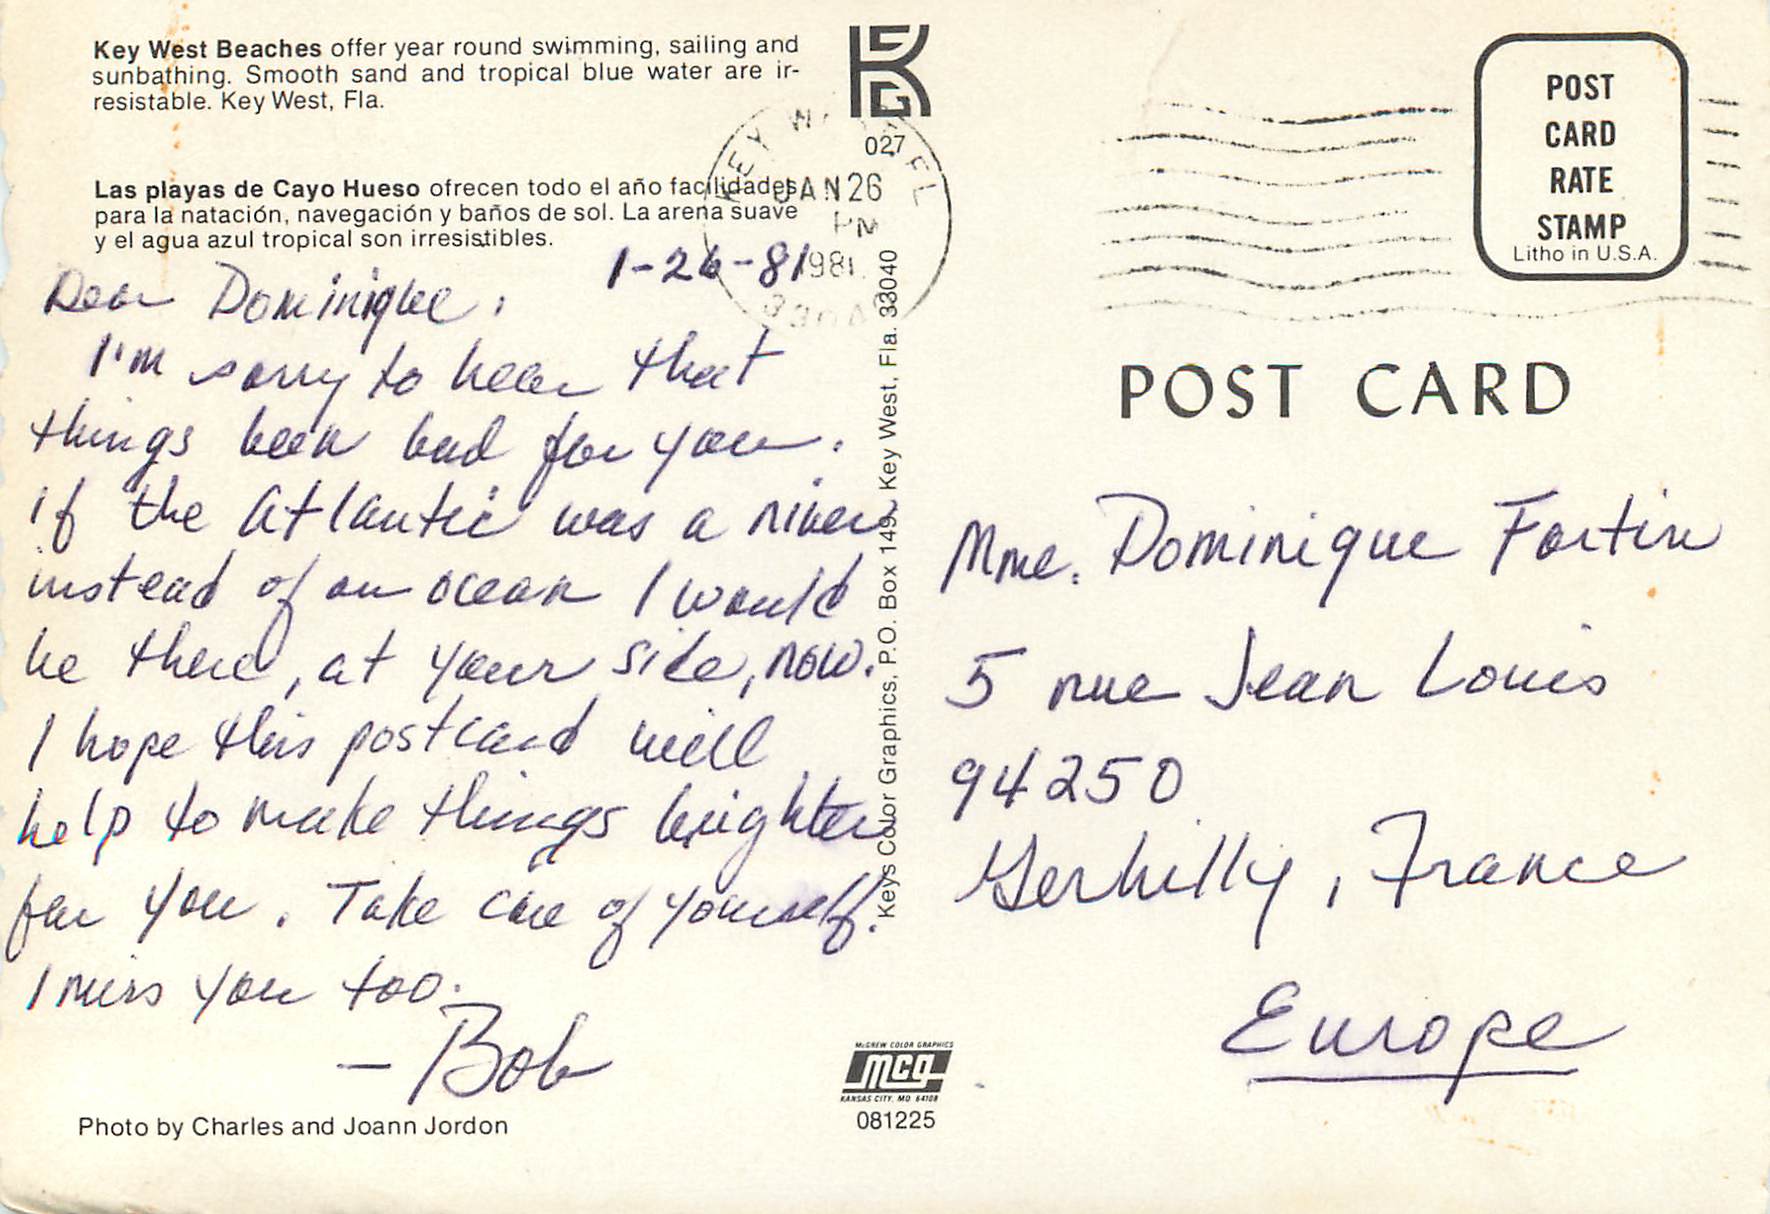 Key West Beaches offer year round swimming, sailing and
sunbathing. Smooth sand and tropical blue water are ir-
resistable. Key West, Fla.
027
Las playas de Cayo Hueso ofrecen todo el año facilidades
para la natación, navegación y baños de sol. La arena suave
y el agua azul tropical son irresistibles.
KEY W FL
JAN 26
PM
1981
1-26-81
Dear Dominique,
I'm sorry to hear that
things been bad for you.
if the Atlantic was a river
instead of an ocean I would
be there, at your side, now.
I hope this postcard will
help to make things brighter
for you. Take care of yourself.
I miss you too.
- Bob
Photo by Charles and Joann Jordon
Keys Color Graphics, P.O. Box 149, Key West, Fla. 33040
McGREW COLOR GRAPHICS
mcg
KANSAS CITY, MO 64108
081225
POST
CARD
RATE
STAMP
Litho in U.S.A.
POST CARD
Mme. Dominique Fortin
5 rue Jean Louis
94250
Gerhilly, France
Europe